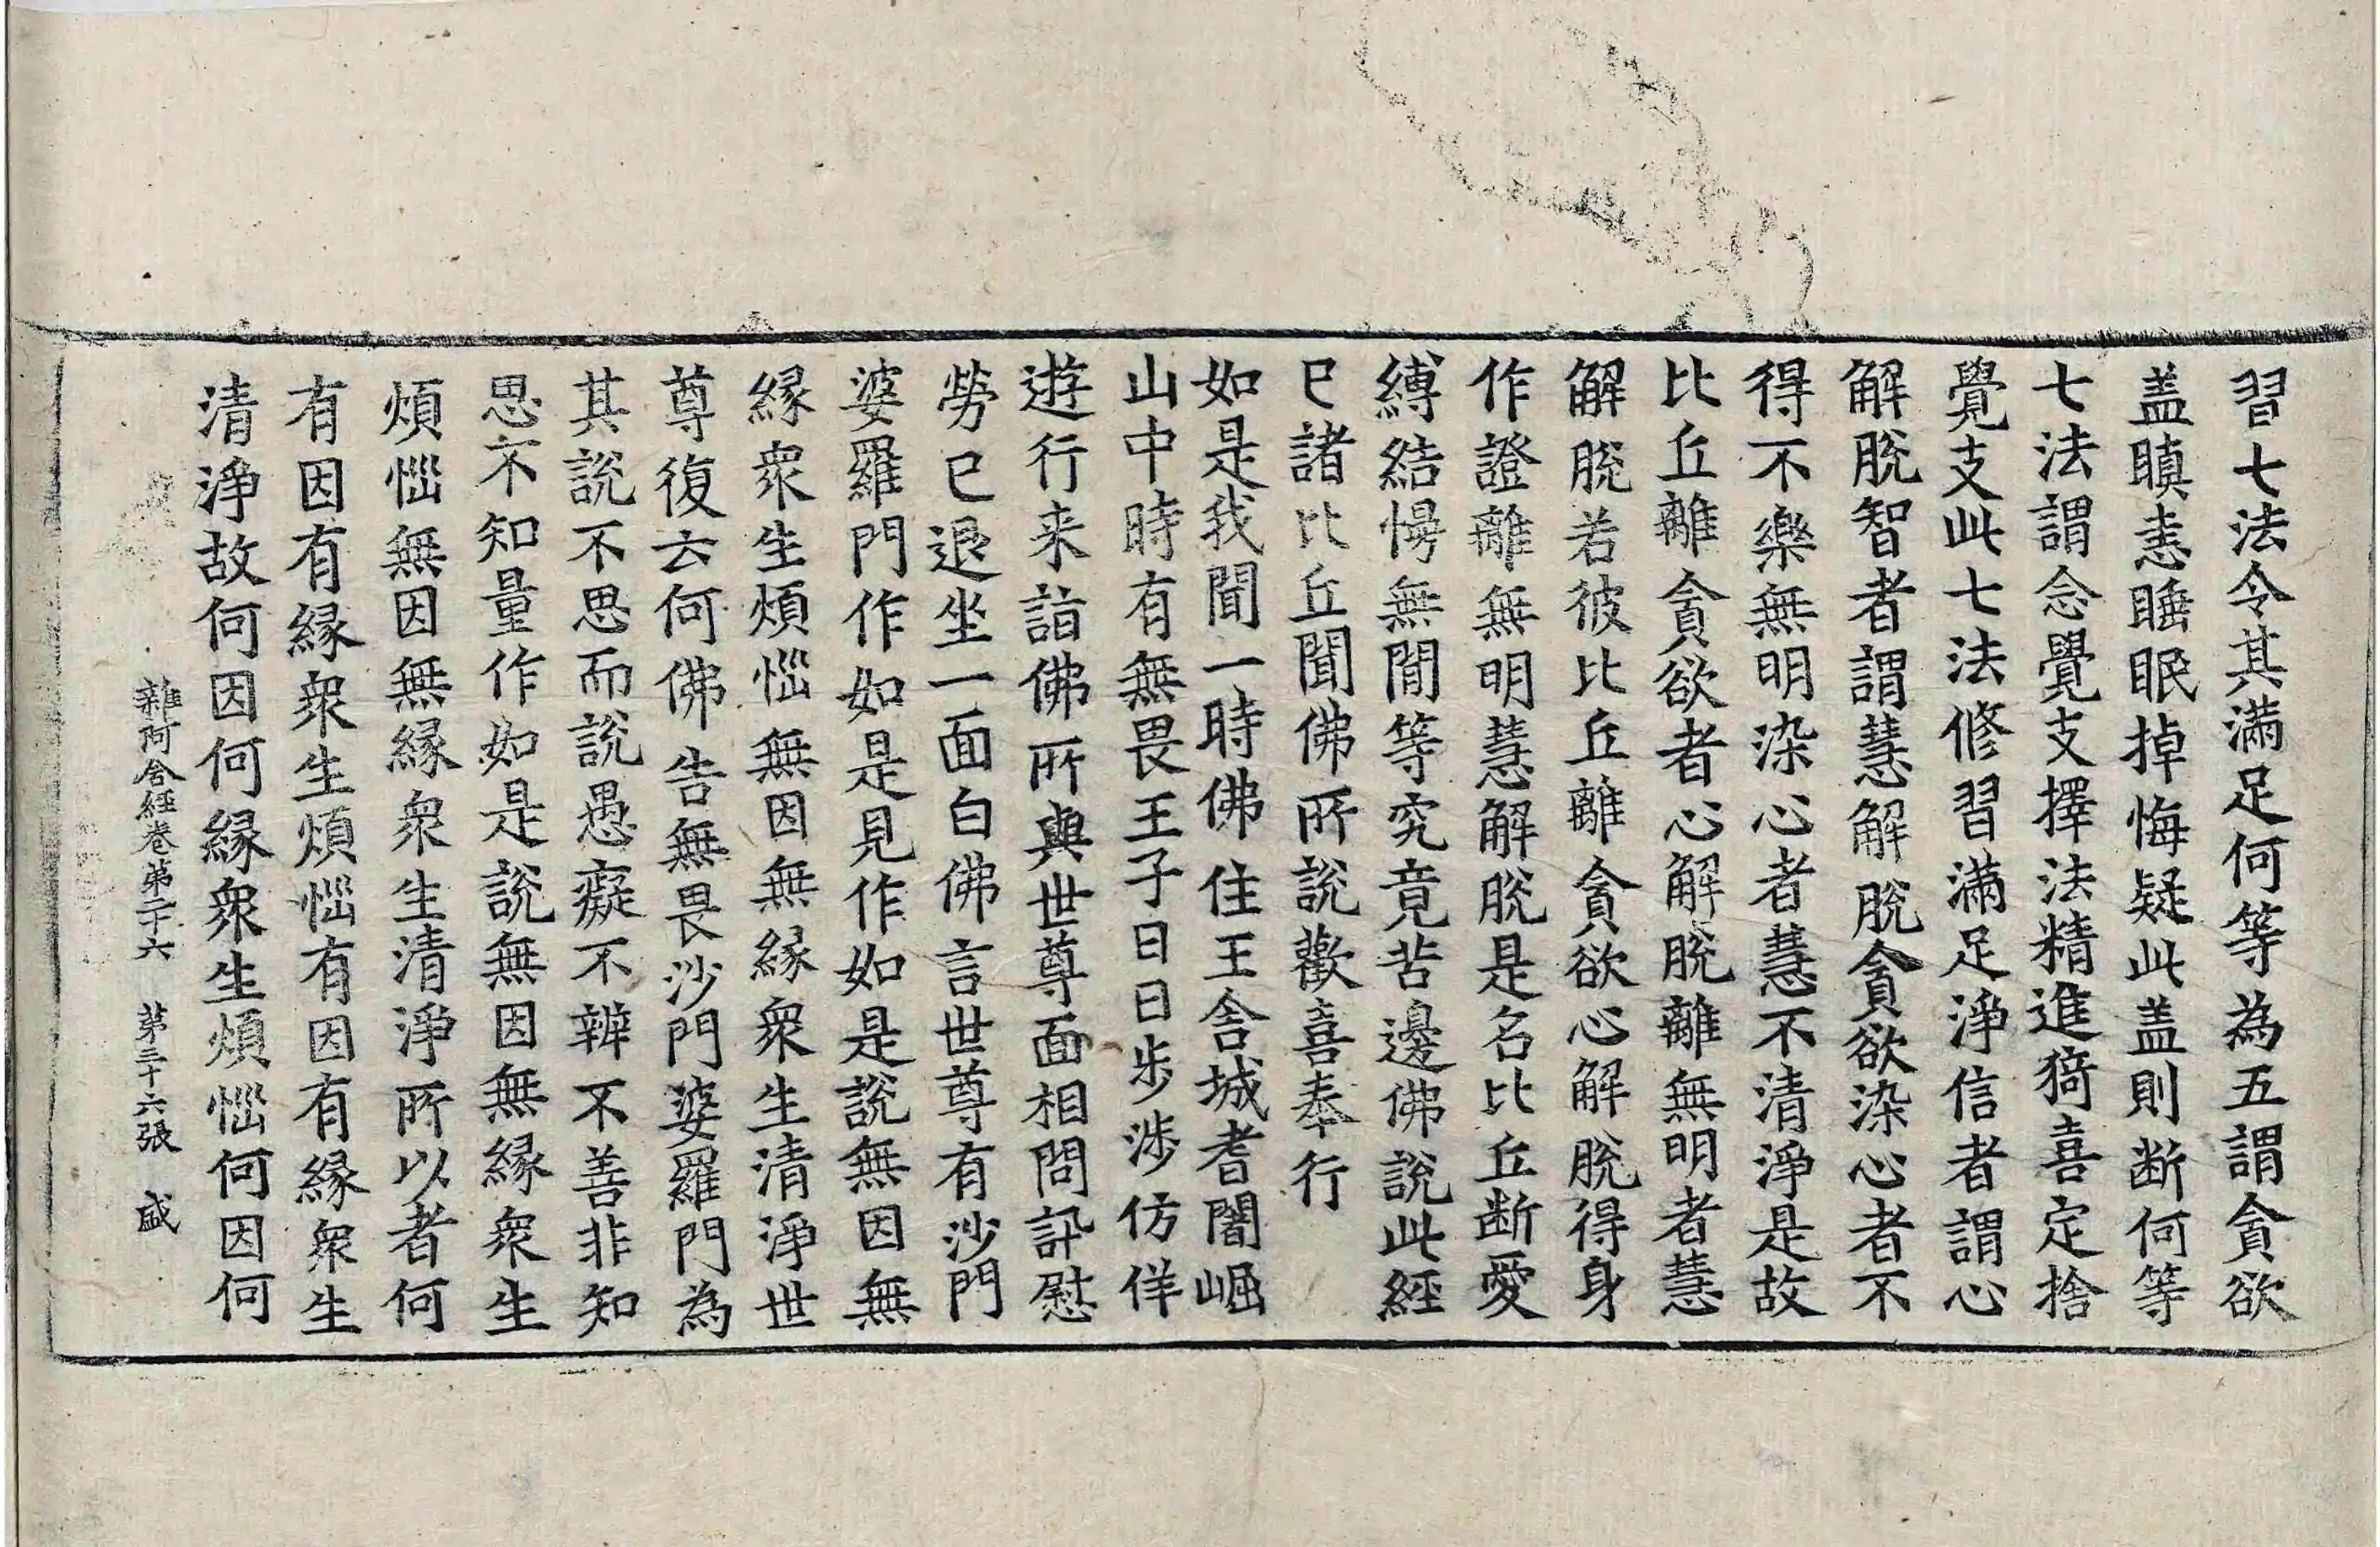 習七法令其滿足何等為五謂貪欲
盖瞋恚睡眠掉悔疑此盖則断何等
七法謂念覺支擇法精進猗喜定捨
覺支此七法修習滿足淨信者謂心
解脫智者謂慧解脫貪欲染心者不
得不樂無明染心者慧不清淨是故
比丘離貪欲者心解脫離無明者慧
解脫若彼比丘離貪欲心解脫得身
作證離無明慧解脫是名比丘断愛
縛結慢無間等究竟苦邊佛說此經
已諸比丘聞佛所說歡喜奉行
如是我聞一時佛住王舍城耆闍崛
山中時有無畏王子日日步涉仿佯
遊行来詣佛所與世尊面相問訊慰
勞已退坐一面白佛言世尊有沙門
婆羅門作如是見作如是說無因無
緣衆生煩惱無因無緣衆生清淨世
尊復云何佛告無畏沙門婆羅門為
其說不思而說愚癡不辨不善非知
思不知量作如是說無因無緣衆生
煩惱無因無緣衆生清淨所以者何
有因有緣衆生煩惱有因有緣衆生
清淨故何因何緣衆生煩惱何因何
雜阿含經卷第二十六　第三十六張　盛